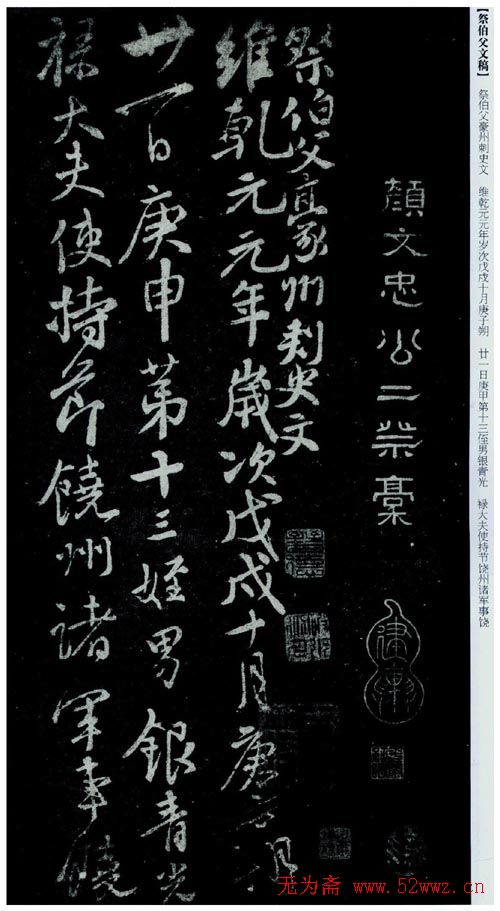 【祭伯父文稿】 祭伯父豪州刺史文 维乾元元年岁次戊戌十月庚子朔 廿一日庚甲第十三侄男银青光 禄大夫使持节饶州诸军事饶
顏文忠公二祭稾
祭伯父豪州刾史文
維乾元元年歲次戊戌十月庚子朔
廿一日庚申第十三姪男銀青光
祿大夫使持節饒州諸軍事饒
无为斋 www.52wwz.cn